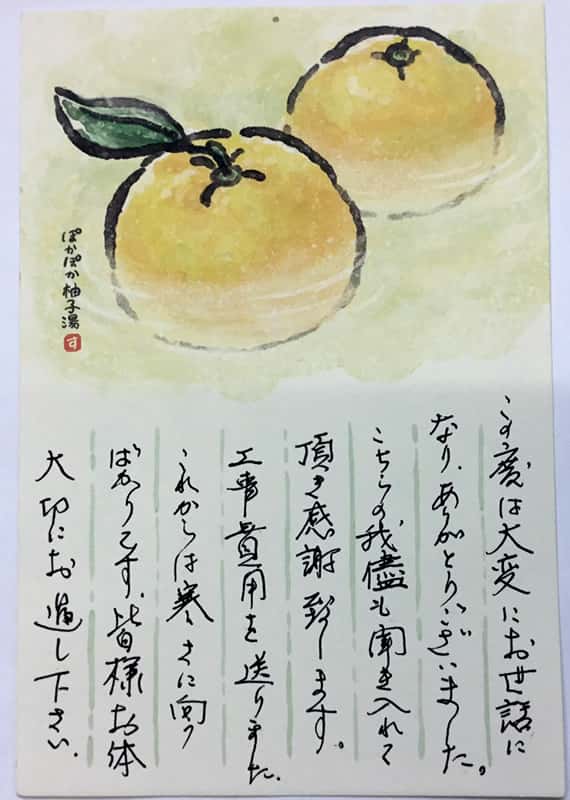 ぽかぽか柚子湯
す
この度は大変にお世話に
なり、ありがとうございました。
こちらの我儘も聞き入れて
頂き感謝致します。
工事費用を送りました
これからは寒さに向う
ばかりです、皆様お体
大切にお過し下さい。